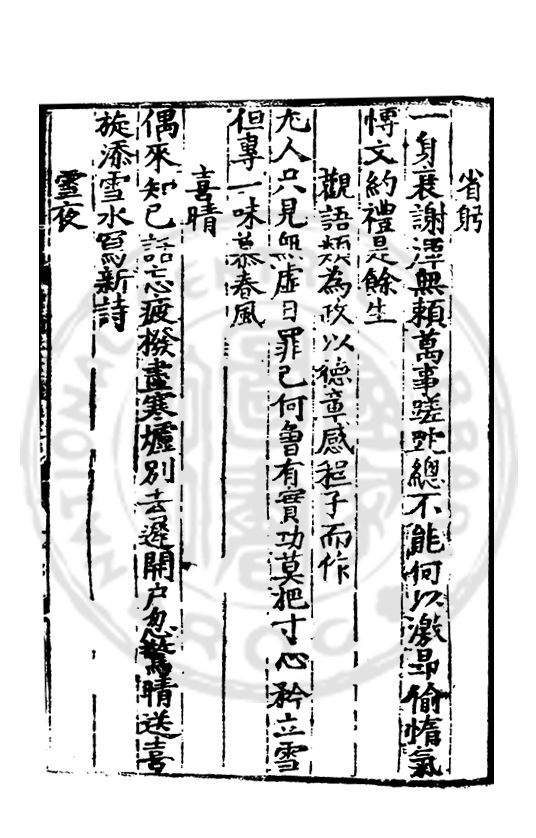 省躬
一身衰謝渾無賴萬事蹉跎總不能何以激昂偷惰氣
博文約禮是餘生
觀語類為政以德章感程子而作
尤人只見無虛日罪己何曾有實功莫把寸心矜立雪
但專一味慕春風
喜晴
偶來知己話忘疲撥盡寒爐別去遲開戶忽驚晴送喜
旋添雪水寫新詩
雪夜